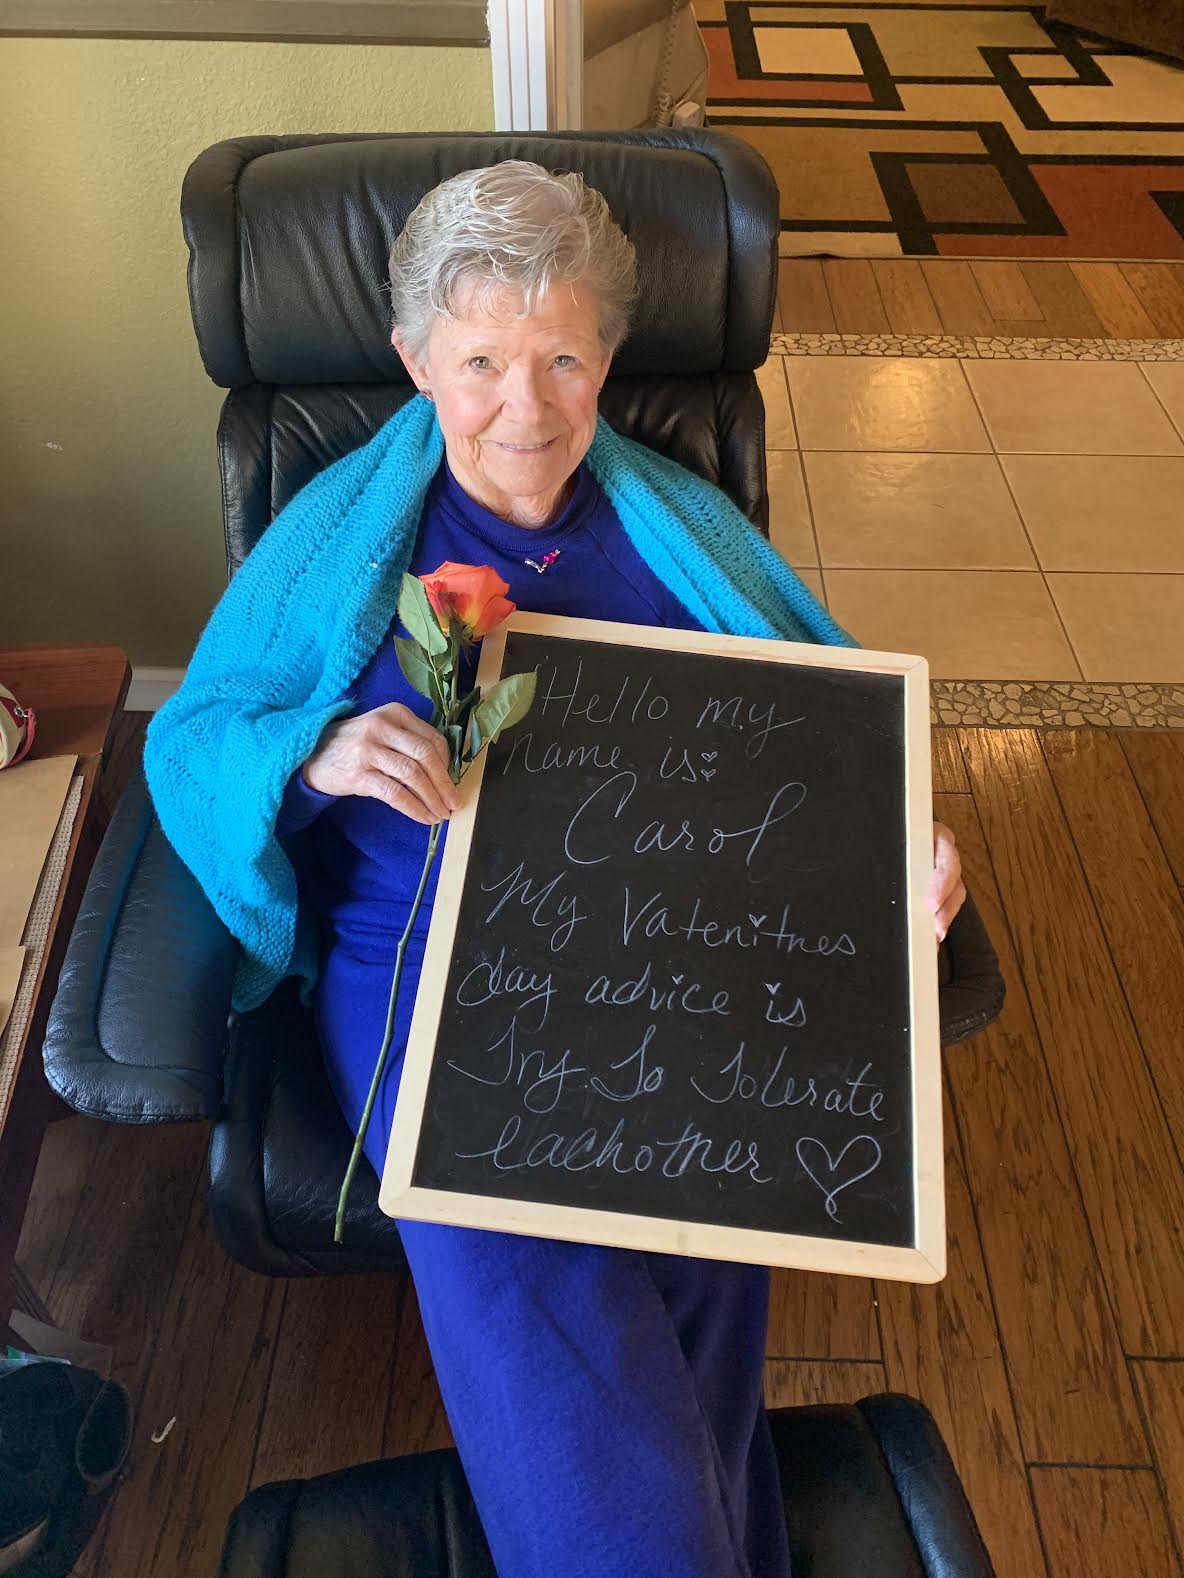 Hello my
name is:
Carol
My Vatenitnes
day advice is
Try To Tolerate
eachother